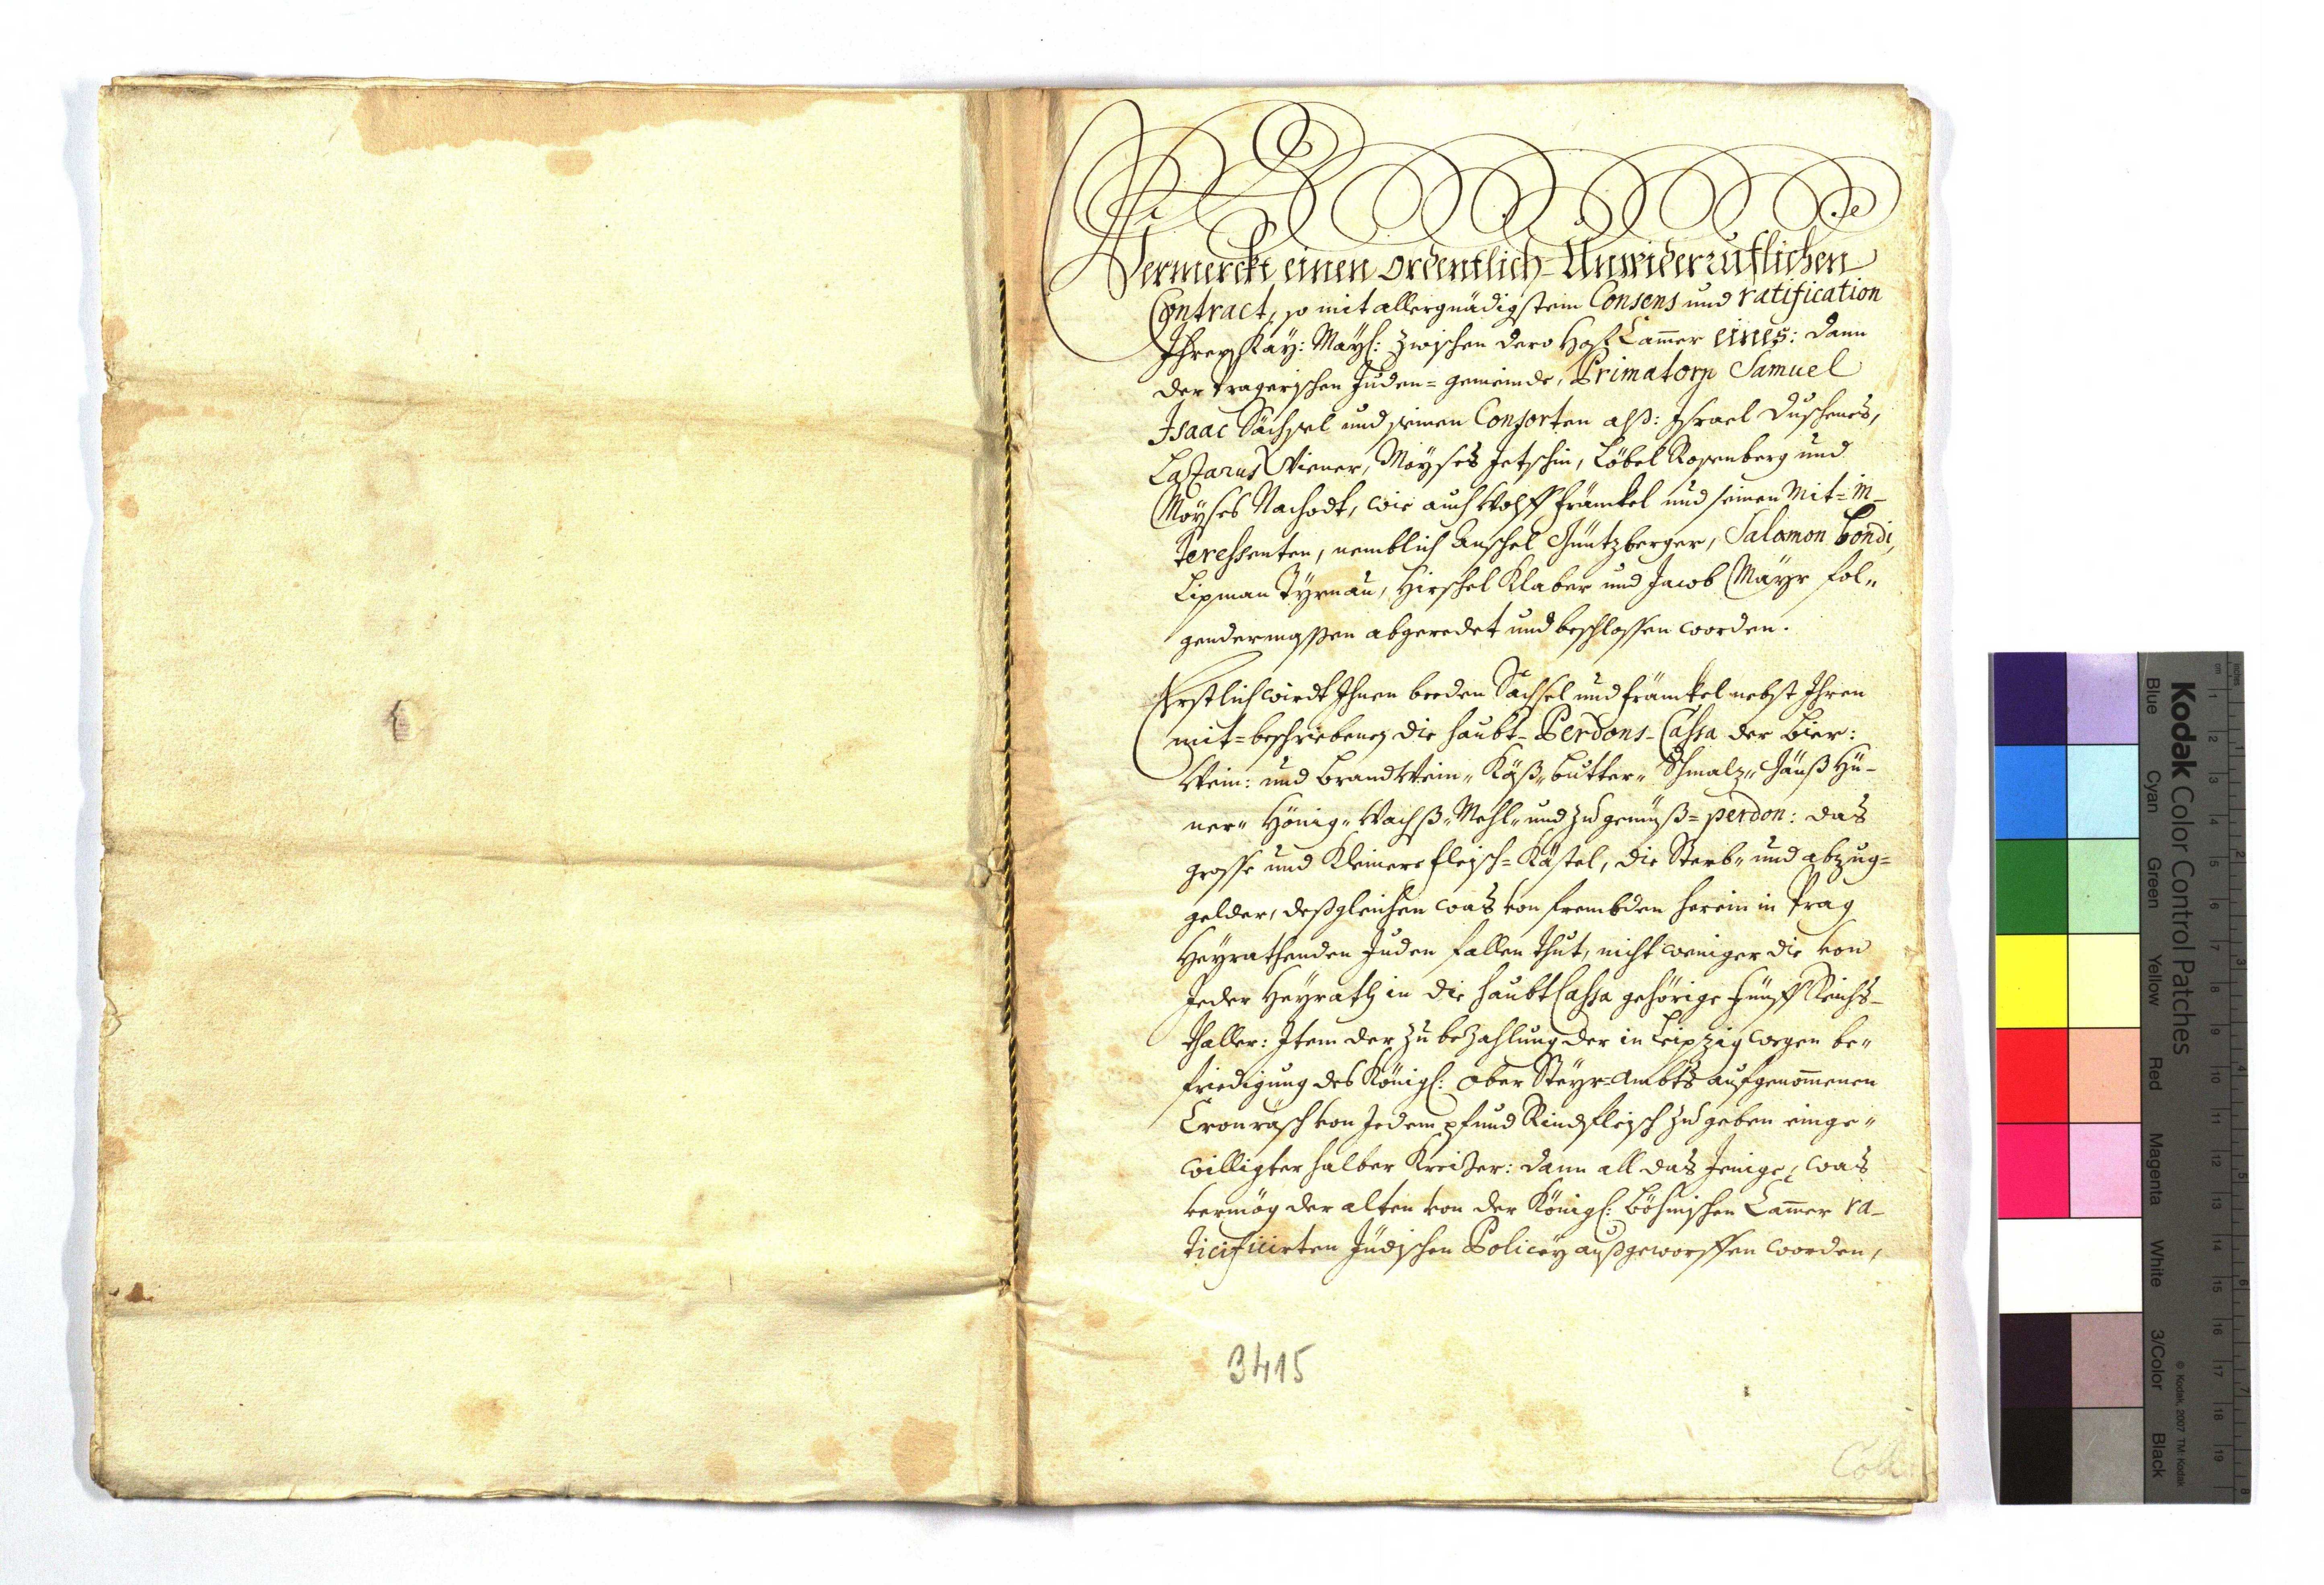 Vermerckt einen ordentlich-Unwiderrufflichen
Contract, so mit allergnädigstem Consens und ratification
Ihrer Kay: Mayl: zwischen dero Hoff Cam̄er eines: dann
der Pragerischen Juden=gemeinde, Primatorn Samuel
Isaac Sächsel und seinen Consorten alß: Israel Duschenes,
Lazarus Wiener, Moyses Jetschin, Löbel Rosenberg und
Moyses Nachodt, wie auch Wolff Fränckel und seinen Mit=in-
teressenten, nemblich Anschel Güntzberger, Salomon Bondi,
Lipman Tyrnau, Hirschel Klaber und Jacob Mayr fol„
gendermassen abgeredet und beschlossen worden.
Erstlich wirdt Ihnen beeden Sächsel und Fränckel nebst Ihren
mit=beschriebenen die haubt-Perdons-Cassa der Bier:
Wein: und BrandtWein„ Käß„ Butter„ Schmalz„ Gänß Hü-
ner„ Hönig„ Wachß„ Mehl„ und zu gemüß=perdon: das
grosse und kleinere fleisch=Kästel, die Sterb„ und abzug=
gelder, deßgleichen was von frembden herein in Prag
Heyrathenden Juden fallen thut, nicht weniger die von
Jeder Heyrath in die haubt Cassa gehörige fünff Reichs-
thaller: Item der zu bezahlung der in Leipzig wegen be„
friedigung des Königl: Ober Steyr=Ambts aufgenom̄enen
Cronrasch von Jedem pfund Rindfleisch zu geben einge„
willigter halber Kreitzer: dann all das Jenige, was
vermög der alten von der Königl: Böhmischen Cam̄er ra-
tificirten Jüdischen Policey außgeworffen worden,
3415
Kodak Color Control Patches
© Kodak, 2007 TM: Kodak
Blue Cyan Green Yellow Red Magenta White 3/Color Black
cm 1 2 3 4 5 6 7 8 9 10 11 12 13 14 15 16 17 18 19
inches 1 2 3 4 5 6 7 8